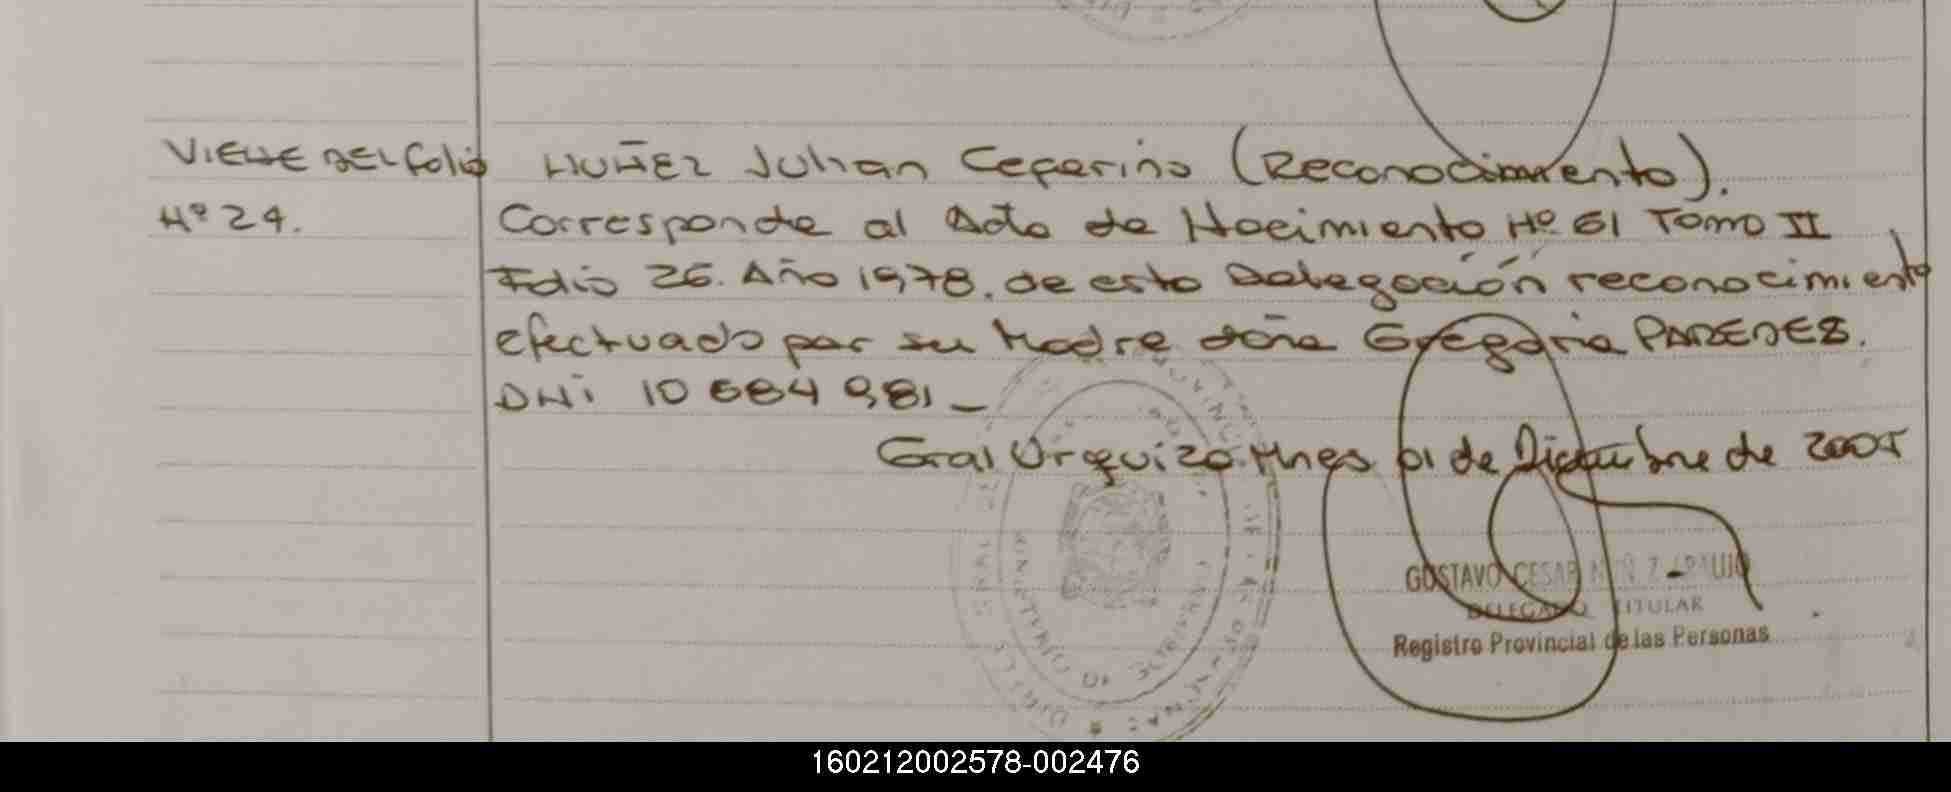 VIENE DEL Folio NUÑEZ Julian Ceferino (Reconocimiento).
Nº 24. Corresponde al Acta de Nacimiento Nº 61 Tomo II
Folio 26. Año 1978. de esta Delegación reconocimiento
efectuado por su Madre doña Gregoria PAREDES.
DNi 10 684 981 _
Gral Urquiza. Mnes 01 de Diciembre de 2005
GUSTAVO CESAR
DELEGADO TITULAR
Registro Provincial de las Personas
160212002578-002476